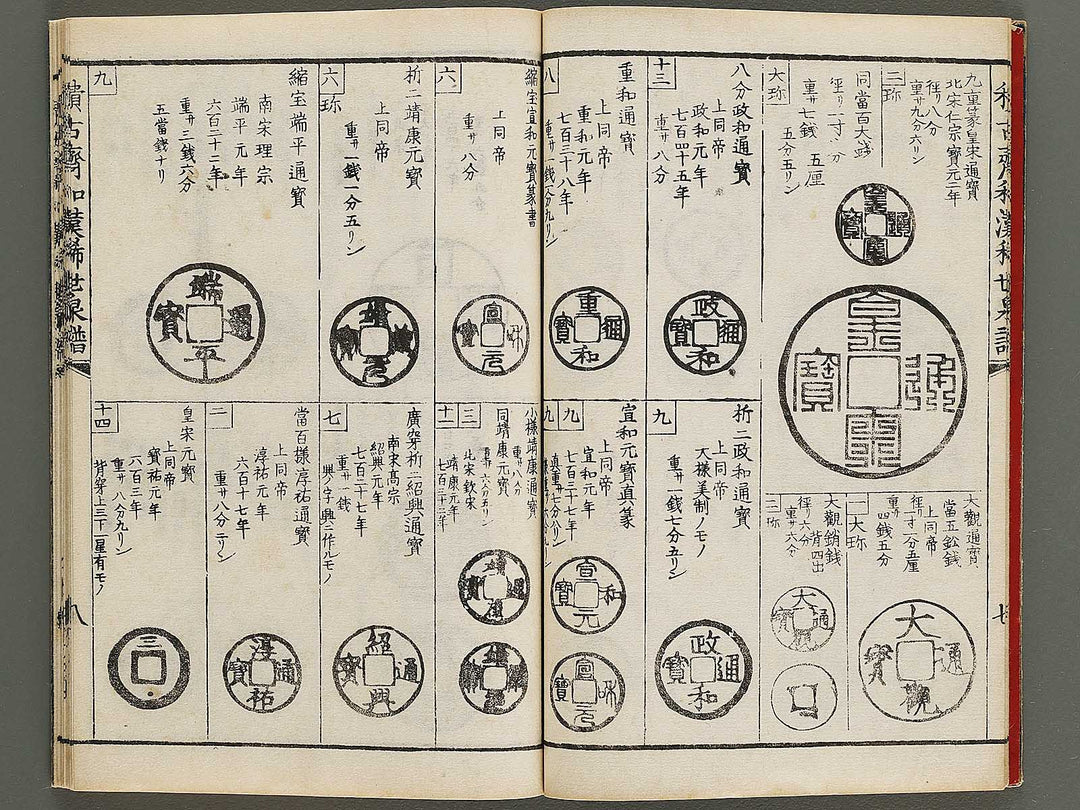 九重篆皇宋通寶
北宋仁宗寶元二年
径リ八分
重サ九分六リン
三珎
同當百大銭
径リ一寸　分
重サ七銭　五厘
五分五リン
大珎
皇宋通寶
皇宋通寶
大觀通寶
當五鈆銭
上同帝
径リ一寸二分五厘
重サ四銭五分
一大珎
大觀鎖銭
背四出
径リ六分
重サ六分
三珎
大觀通寶
大通寶
八分政和通寶
上同帝
政和元年
七百四十五年
重サ八分
十三
政和通寶
折二政和通寶
大様美制ノモノ
重サ一銭七分五リン
九
政和通寶
重和通寶
上同帝
重和元年
七百三十八年
重サ一銭
八
重和通寶
宣和元寶真篆
上同帝
宣和元年
七百三十七年
九
九
宣和元寶
宣和元寶
縮宝宣和元寶篆書
上同帝
重サ八分
六
宣和元寶
小様靖康通寶
重サ八分
同靖康元寶
重サ六分五リン
北宋欽宗
靖康元年
七百三十二年
三
十二
靖康通寶
靖康元寶
折二靖康元寶
上同帝
重サ一銭一分五リン
六珎
靖康元寶
廣穿折二紹興通寶
南宋高宗
紹興元年
七百二十七年
重サ一銭
興ノ字興ニ作ルモノ
七
紹興通寶
縮宝端平通寶
南宋理宗
端平元年
六百二十二年
重サ三銭六分
五當銭ナリ
九
端平通寶
當百様淳祐通寶
上同帝
淳祐元年
六百十七年
重サ八分二リン
二
淳祐通寶
皇宋元寶
上同帝
寶祐元年
六百三年
重サ八分九リン
背穿上三十一星有モノ
十四
三
積古齋和漢稀世泉譜
八